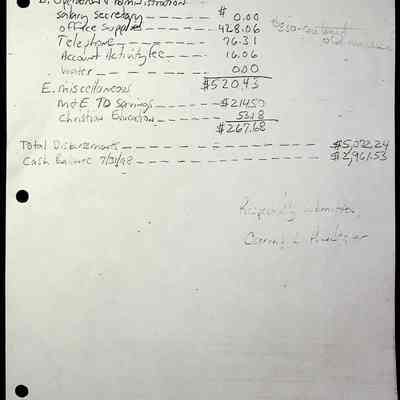 D. Operation & Administration
Salary Secretary ---- $ 0.00
office supplies ---- 428.06
Telephone ---- 76.31
Account Activity fee --- 16.06
Water ---- 000
$520.43
E. miscellaneous
M&E TD Savings ---- $214.50
Christian Education ---- 53.18
$267.68
Total Disbursements ---- $5,072.24
Cash Balance 7/31/98 ---- $2,961.53
Respectfully submitted,